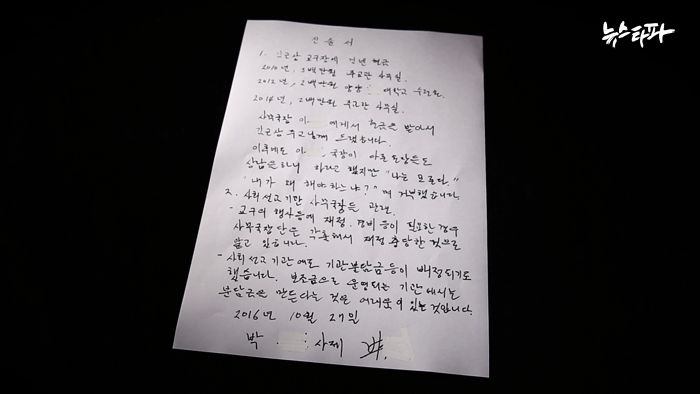 뉴스타파
진술서
1. 김근상 교구장에 건넨 현금
2010년, 3백만원 주교관 사무실.
2012년, 2백만원 대학교 수련원.
2014년, 2백만원 주교관 사무실.
사무국장 이 에게서 현금을 받아서
김근상 주교님께 드렸습니다.
이후에도 이 국장이 아픈 도장들도
상납을 하라고 했지만 "나는 모른다."
"내가 왜 해야하느냐?" 며 거부했습니다.
2. 사회선교기관 사무국장들 관련.
- 교구의 행사등에 재정, 경비 등이 필요한 경우
사무국장단은 각출해서 재정 충당한 것으로
알고 있습니다.
- 사회선교기관에도 기관분담금등이 배정되기도
했습니다. 보조금으로 운영되는 기관에서는
분담금을 만든다는 것은 어려움이 있는 것입니다.
2016년 10월 27일
박 사제